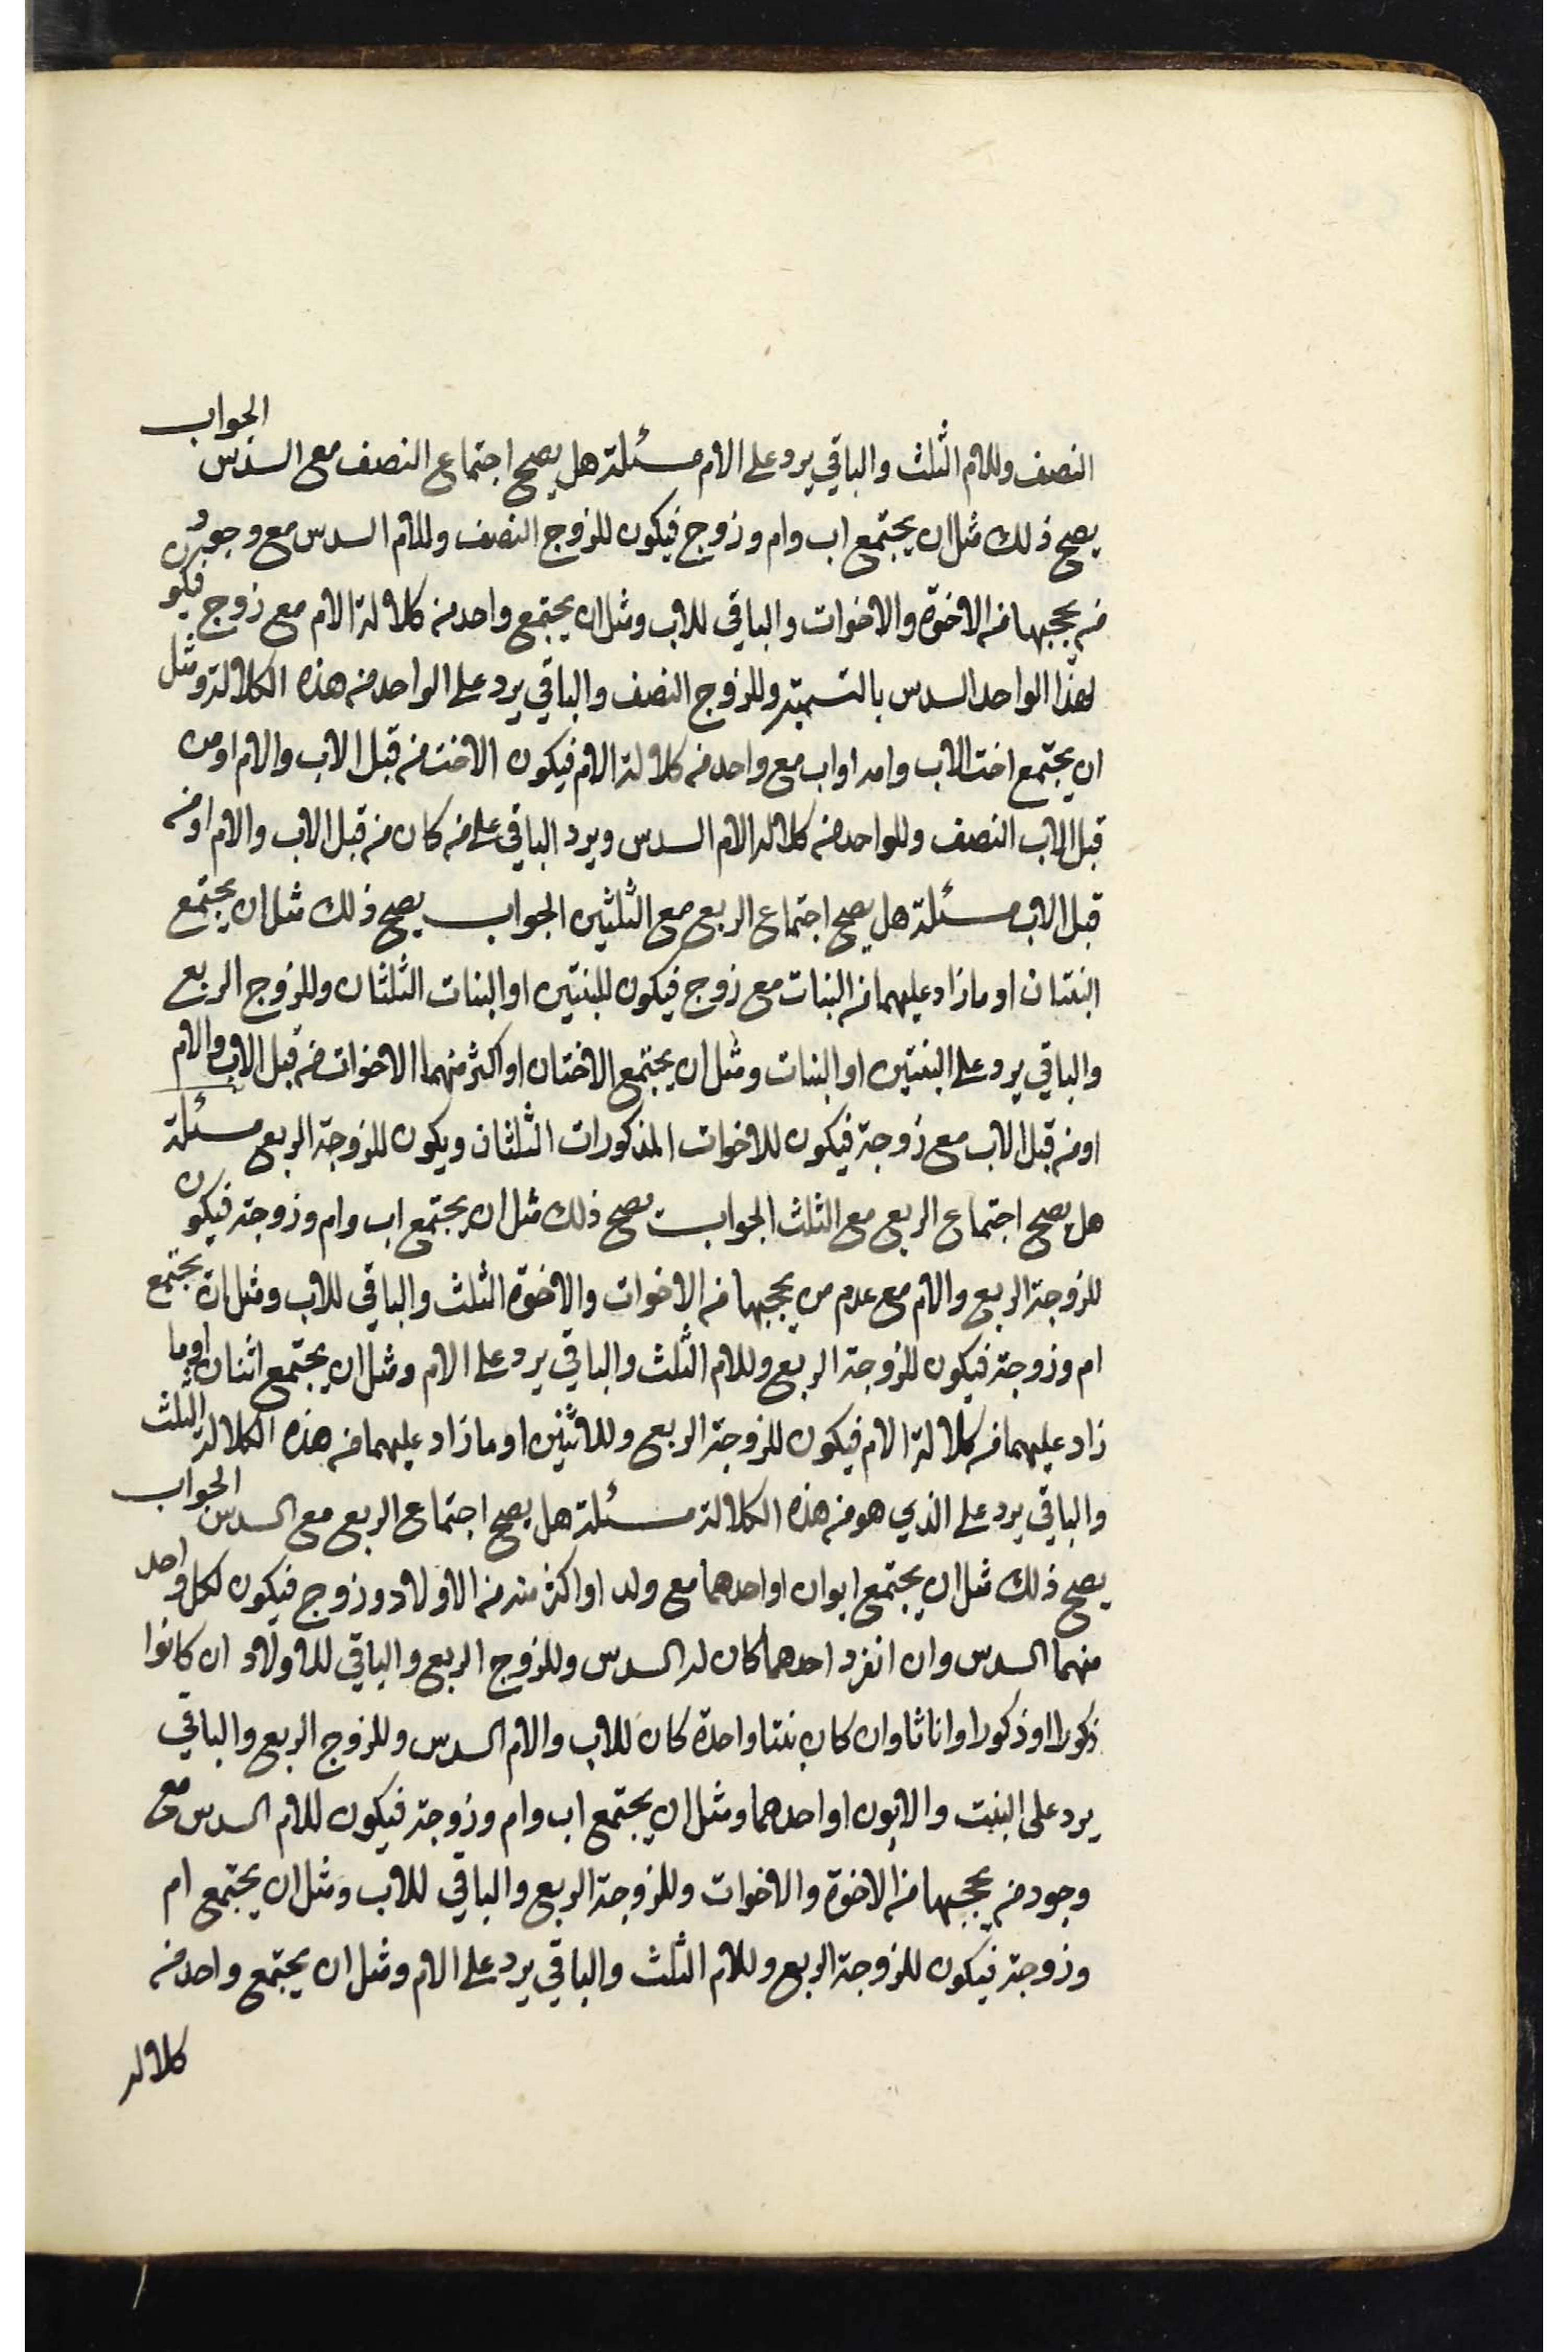 النصف وللام الثلث والباقي يرد على الام مسئلة هل يصح اجتماع النصف مع السدس الجواب
يصح ذلك مثل ان يجتمع اب وام وزوج فيكون للزوج النصف وللام السدس مع وجود
من يحجبها من الاخوة والاخوات والباقي للاب ومثل ان يجتمع واحد من كلالة الام مع زوج فيكون
لهذا الواحد السدس بالتسمية وللزوج النصف والباقي يرد على الواحد من هذه الكلالة ومثل
ان يجتمع اخت لاب وام او اب مع واحد من كلالة الام فيكون الاخت من قبل الاب والام او من
قبل الاب النصف وللواحد من كلالة الام السدس ويرد الباقي على من كان من قبل الاب والام او من
قبل الاب مسئلة هل يصح اجتماع الربع مع الثلثين الجواب يصح ذلك مثل ان يجتمع
البنتان او ما زاد عليهما من البنات مع زوج فيكون للبنتين او البنات الثلثان وللزوج الربع
والباقي يرد على البنتين او البنات ومثل ان يجتمع الاختان او اكثر منهما الاخوات من قبل الاب والام
او من قبل الاب مع زوجة فيكون للاخوات المذكورات الثلثان ويكون للزوجة الربع مسئلة
هل يصح اجتماع الربع مع الثلث الجواب يصح ذلك مثل ان يجتمع اب وام وزوجة فيكون
للزوجة الربع والام مع عدم من يحجبها من الاخوات والاخوة الثلث والباقي للاب ومثل ان يجتمع
ام وزوجة فيكون للزوجة الربع وللام الثلث والباقي يرد على الام ومثل ان يجتمع اثنان او ما
زاد عليهما من كلالة الام فيكون للزوجة الربع وللاثنين او ما زاد عليهما من هذه الكلالة الثلث
والباقي يرد على الذي هو من هذه الكلالة مسئلة هل يصح اجتماع الربع مع السدس الجواب
يصح ذلك مثل ان يجتمع ابوان او احدهما مع ولد او اكثر منه من الاولاد وزوج فيكون لكل واحد
منهما السدس وان انفرد احدهما كان له السدس وللزوج الربع والباقي للاولاد ان كانوا
ذكورا او ذكورا واناثا وان كان بنتا واحدة كان للاب والام السدس وللزوج الربع والباقي
يرد على البنت والابوين او احدهما ومثل ان يجتمع اب وام وزوجة فيكون للام السدس مع
وجود من يحجبها من الاخوة والاخوات وللزوجة الربع والباقي للاب ومثل ان يجتمع ام
وزوجة فيكون للزوجة الربع وللام الثلث والباقي يرد على الام ومثل ان يجتمع واحد من
كلالة